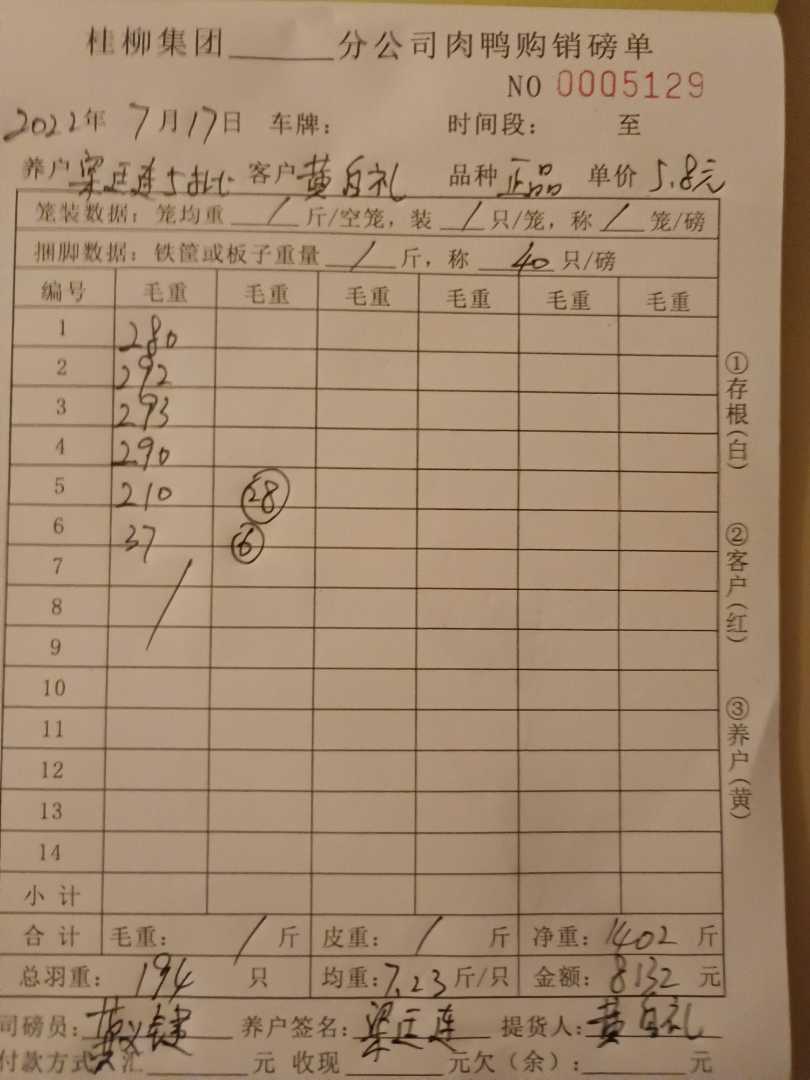 桂柳集团______分公司肉鸭购销磅单
NO 0005129
2022年 7月17日 车牌： 时间段： 至
养户 梁廷连5批 客户 黄自礼 品种 正品 单价 5.8元
笼装数据：笼均重 / 斤/空笼，装 / 只/笼，称 / 笼/磅
捆脚数据：铁筐或板子重量 / 斤，称 40 只/磅
编号 毛重 毛重 毛重 毛重 毛重 毛重
1 280
2 292
3 293
4 290
5 210 28
6 37 6
7 /
8
9
10
11
12
13
14
小计
合计 毛重： / 斤 皮重： / 斤 净重：1402 斤
总羽重： 194 只 均重：7.23 斤/只 金额：8132 元
司磅员：黄 养户签名：梁廷连 提货人：黄自礼
付款方式：汇______元 收现______元欠（余）：______元
①存根(白)
②客户(红)
③养户(黄)